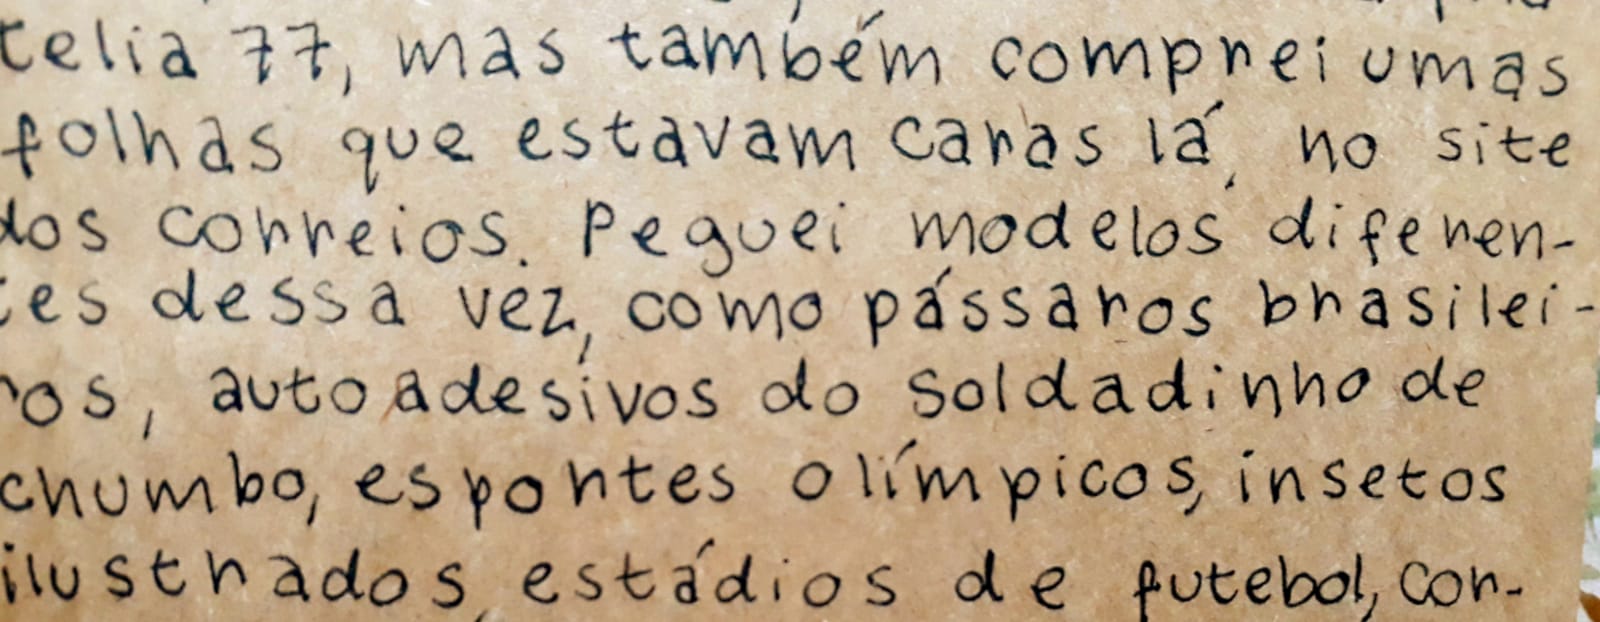 telia 77, mas também comprei umas
folhas que estavam caras lá, no site
dos correios. Peguei modelos diferen-
tes dessa vez, como pássaros brasilei-
ros, autoadesivos do soldadinho de
chumbo, esportes olímpicos, insetos
ilustrados, estádios de futebol, cor-